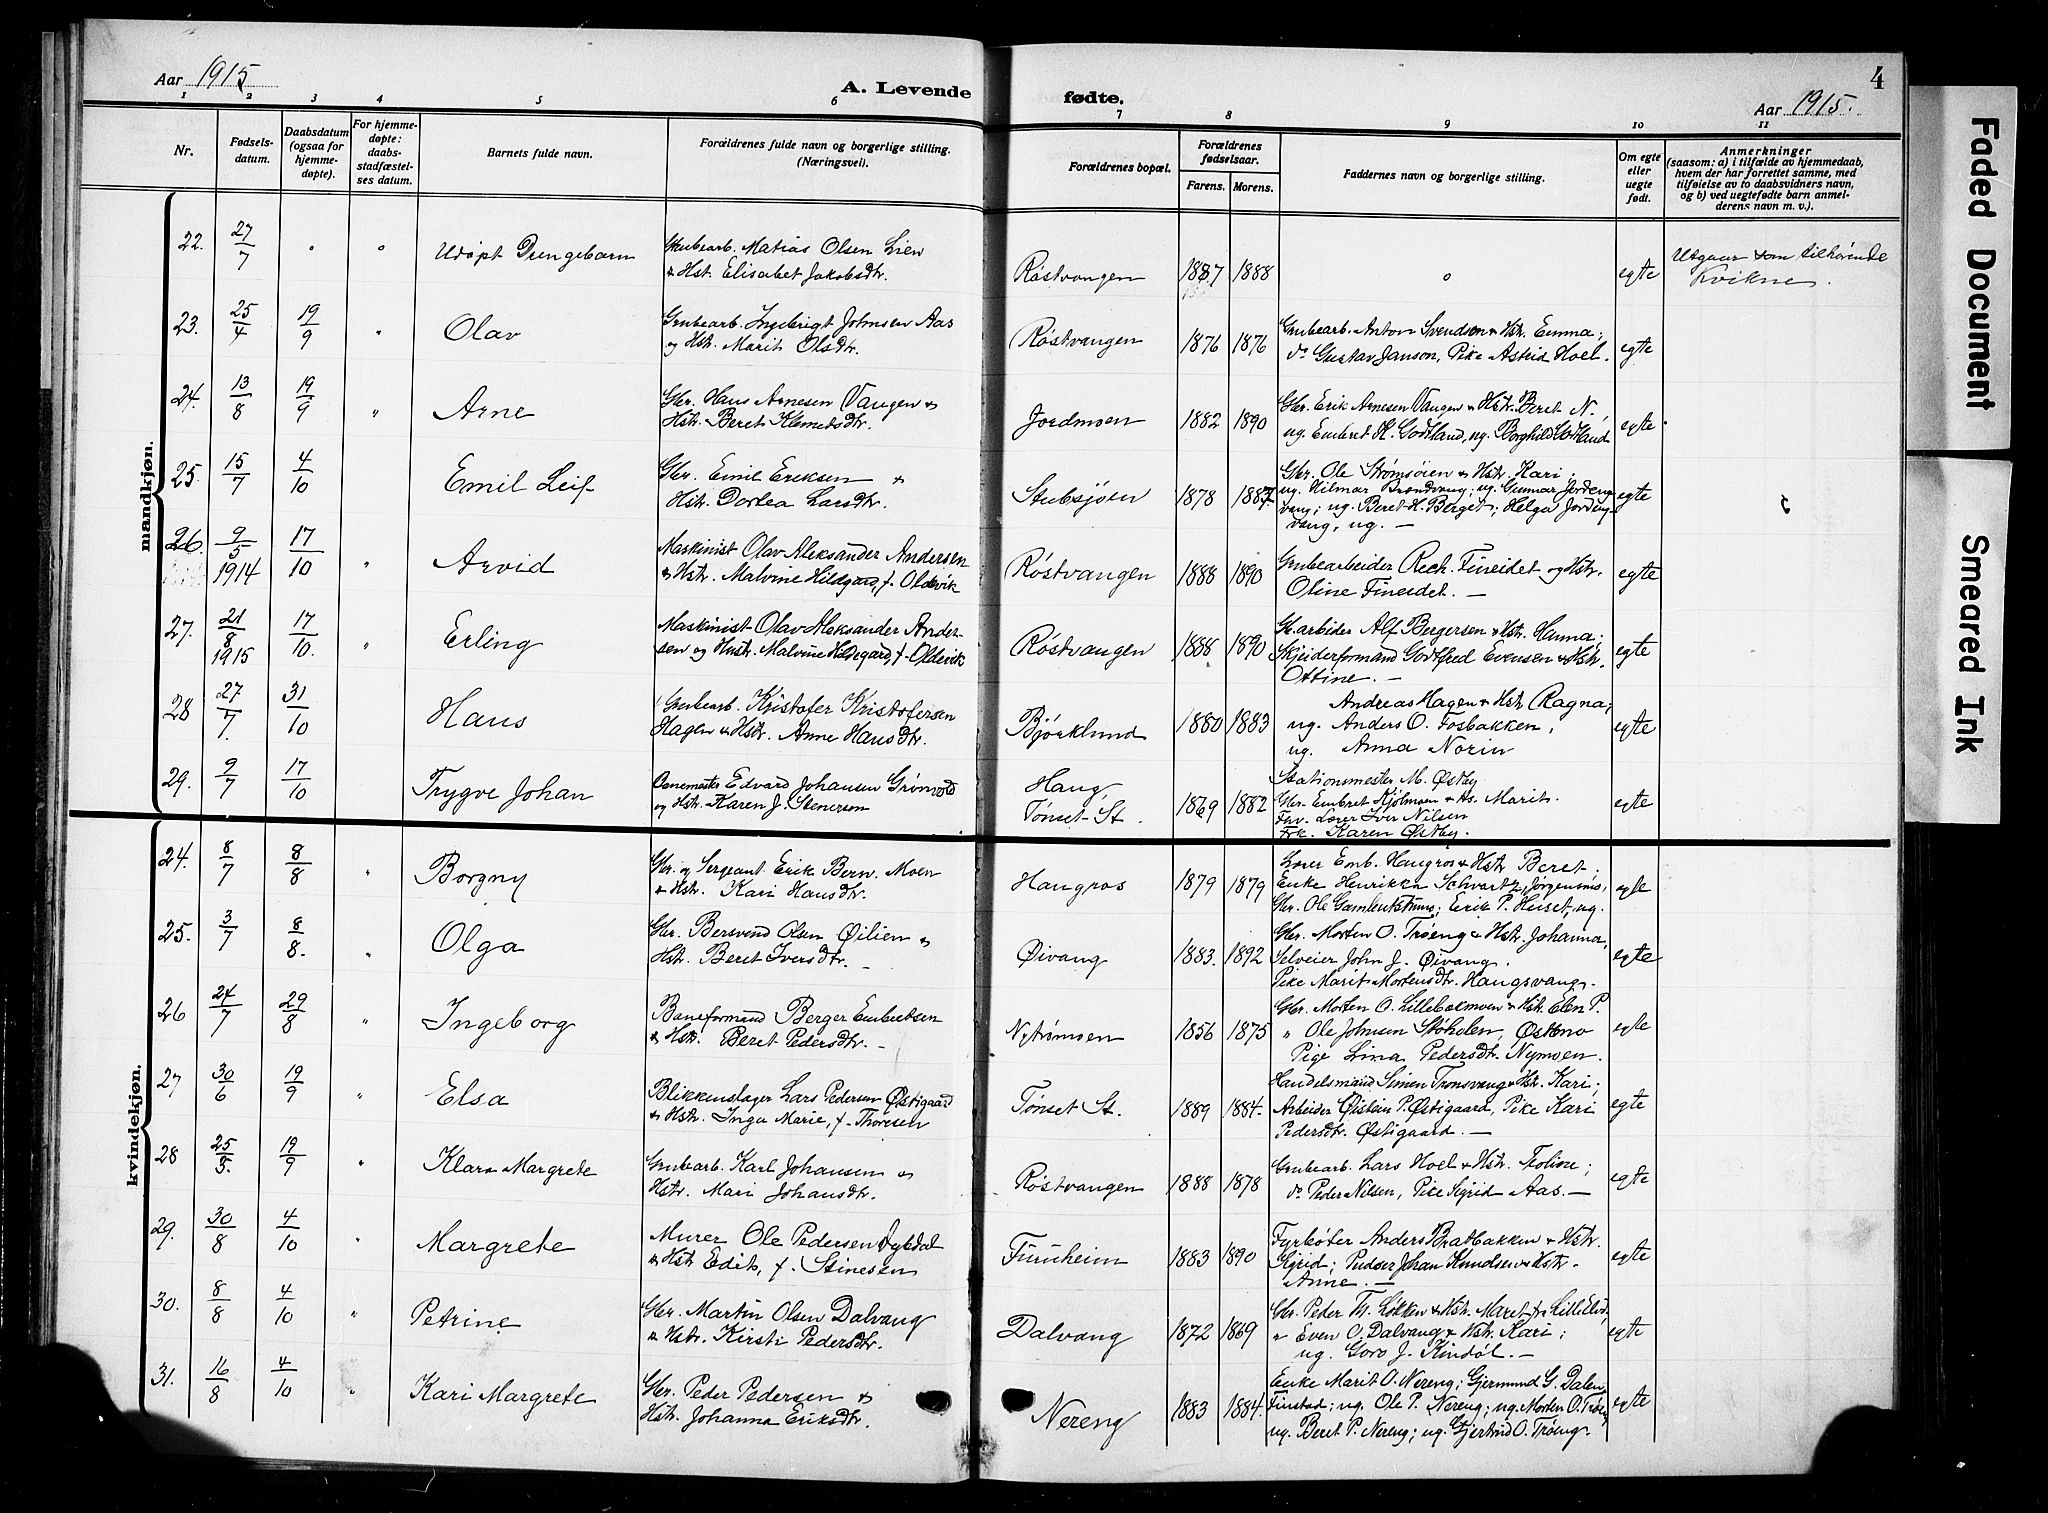 Aar 1915
A. Levende fødte.
Aar 1915.
4
1 2 3 4 5 6 7 8 9 10 11
Nr.
Fødsels-
datum.
Daabsdatum
(ogsaa for
hjemme-
døpte).
For hjemme-
døpte:
daabs-
stadfæstel-
ses datum.
Barnets fulde navn.
Forældrenes fulde navn og borgerlige stilling.
(Næringsvei).
Forældrenes bopæl.
Forældrenes
fødselsaar.
Farens. Morens.
Faddernes navn og borgerlige stilling.
Om egte
eller
uegte
født.
Anmerkninger
(saasom: a) i tilfælde av hjemmedaab,
hvem der har forrettet samme, med
tilføielse av to daabsvidners navn,
og b) ved uegtefødte barn anmel-
derens navn m. v.).
mandkjøn.
22. 27/7 " " Udøpt Drengebarn
Grubearb. Matias Olsen Lien
& Hst. Elisabet Jakobsdtr.
Røstvangen 1887 1888 " egte
Utgaar som tilhørende
Kvikne.
23. 25/4 19/9 " Olav
Grubearb. Ingebrigt Johnsen Aas
og Hst. Marit Olsdtr.
Røstvangen 1876 1876
Grubearb. Anton Svendsen & Hst. Emma;
do Gustav Janson, Pike Astrid Hoel.
egte
24. 13/8 19/9 " Arne
Gbr. Hans Arnesen Vangen &
Hst. Beret Klemetsdtr.
Jordmoen 1882 1890
Gbr. Erik Arnesen Vangen & Hst. Beret N.,
ug. Embret H. Godtland, ug. Borghild Godtland
egte
25. 15/7 4/10 Emil Leif
Gbr. Emil Eriksen &
Hst. Dortea Larsdtr.
Stubsjøen 1878 1887
Gbr. Ole Strømsøien & Hst. Kari;
ug. Hilmar Brandvang; ug. Gunnar Jordeng-
vang; ug. Beret H. Berget; Helga Jordeng-
vang, ug. —
egte
26. 9/5 1914 17/10 " Arvid
Maskinist Olav Aleksander Andersen
& Hst. Malvine Hildgard, f. Oldervik
Røstvangen 1888 1890
Grubearbeider Rech. Fineidet og Hst.
Oline Fineidet. —
egte
27. 21/8 1915 17/10. " Erling
Maskinist Olav Aleksander Ander-
sen og Hustr. Malvine Hildegard, f. Oldervik
Røstvangen 1888 1890
Gr.arbider Alf Bergersen & Hst. Hanna;
Skjeiderformand Godtfred Evensen & Hst.
Ottine. —
egte
28 27/7. 31/10 Hans
Grubearb. Kristofer Kristofersen
Hagen & Hst. Anne Hansdtr.
Bjørklund 1880 1883
Andreas Hagen & Hst Ragna;
ug. Anders O. Fosbakken,
ug. Anna Norin
egte
29. 9/7 17/10 Trygve Johan
Banemester Edvard Johansen Grønvold
og Hst. Karen J. Stenersen
Haug
Tønset St. 1869 1882
Stationsmester M. Østby
Gbr. Embret Kjølmoen & Hs. Marit.
Frv. Lærer Iver Nilsen
Frk. Karen Østby.
egte
kvindekjøn.
24. 8/7 8/8 " Borgny
Gbr. og Sergeant Erik Bern. Moen
& Hst. Kari Hansdtr.
Haugros 1879 1879
Lærer Emb. Haugros & Hst. Beret;
Enke Henrikka Schvartz, Jørgensmo;
Gbr. Ole Gamkentstuen; Eirik P. Huset, ug.
egte
25. 3/7 8/8. " Olga
Gbr. Bersvend Olsen Øilien &
Hst. Beret Iversdtr. —
Øivang 1883. 1892
Gbr. Morten O. Trøeng & Hst. Johanna,
Selveier John J. Øivang.
Pike Marit Mortensdtr. Haugsvang.
egte
26 24/7 29/8 " Ingeborg
Baneformand Berger Embretsen
& Hst. Beret Pedersdtr. —
Nytrømoen 1856 1875
Gbr. Morten O. Lillebakmoen & Hst. Elen P.
" Ole Johnsen Støholen, Østeno
Pige Lina Pedersdtr. Nymoen.
egte
27 30/6 19/9 " Elsa
Blikkenslager Lars Pedersen Østigaard
& Hst. Inga Marie, f. Thoresen
Tønset St. 1889 1884.
Handelsmand Simen Tronsvang & Hst. Kari;
Arbeider Øistein P. Østigaard, Pike Kari
Pedersdtr. Østigaard. —
egte
28 25/5. 19/9 " Klara Margrete
Grubearb. Karl Johansen &
Hst. Mari Johansdtr.
Røstvangen 1888 1878
Grubearb. Lars Hoel & Hst. Teoline;
do Peder Nilsen, Pike Sigrid Aas. —
egte
29. 30/8 4/10 " Margrete
Murer Ole Pedersen Dybdal
& Hst Edit, f. Stinesen
Furuheim 1883 1890
Fyrbøter Anders Bratbakken & Hst.
Sigrid; Pudser Johan Knudsen & Hst.
Anne. —
egte
30. 8/8 4/10 " Petrine
Gbr. Martin Olsen Dalvang
& Hst. Kirsti Pedersdtr.
Dalvang 1872 1869
Gbr. Peder Th. Løkken & Hst. Maret
" Even O. Dalvang & Hst. Kari;
ug. Goro J. Kindøl. —
egte
31. 16/8 4/10 " Kari Margrete
Gbr. Peder Pedersen &
Hst. Johanna Eriksdtr.
Nereng 1883 1884.
Enke Marit O. Nereng; Gjermund G. Dalen
Finstad; ug. Ole P. Nereng; ug. Morten O. Trøen
ug. Beret P. Nereng; ug. Gjertrud O. Trøeng.
egte
Faded Document
Smeared Ink